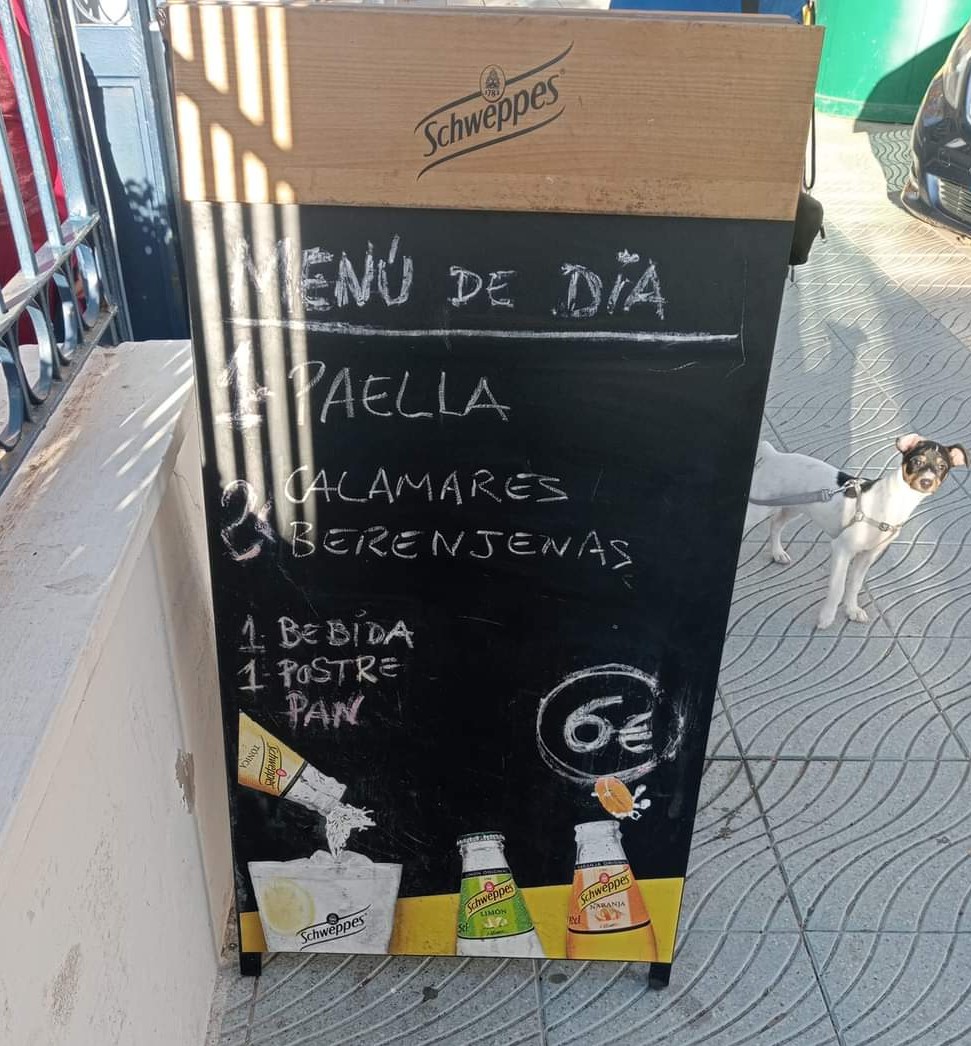 1783
Schweppes
MENÚ DE DÍA
1 PAELLA
2 CALAMARES
BERENJENAS
1 BEBÍDA
1 POSTRE
PAN
6€
Schweppes
TÓNICA
Schweppes
Schweppes
LIMÓN
Schweppes
NARANJA